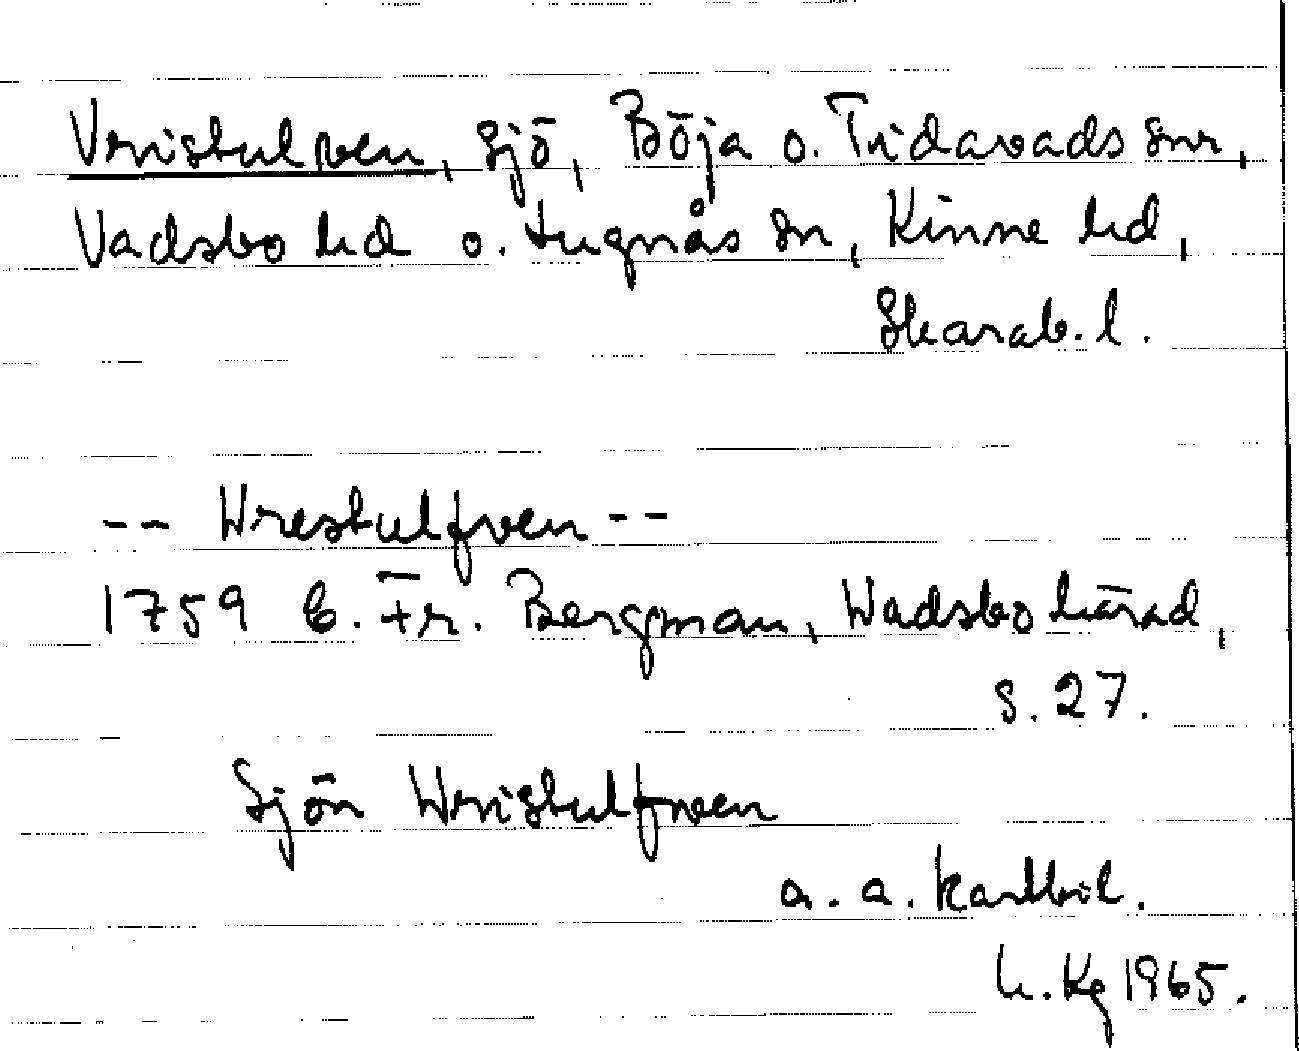 Vristulven, sjö, Böja o. Tidavads snr,
Vadsbo hd o. Lugnås sn, Kinne hd,
Skarab. l.
-- Wrestulfven --
1759 E. Fr. Bergman, Wadsbo härad,
s. 27.
Sjön Wristulfven
a. a. kartbil.
h. Kg 1965.